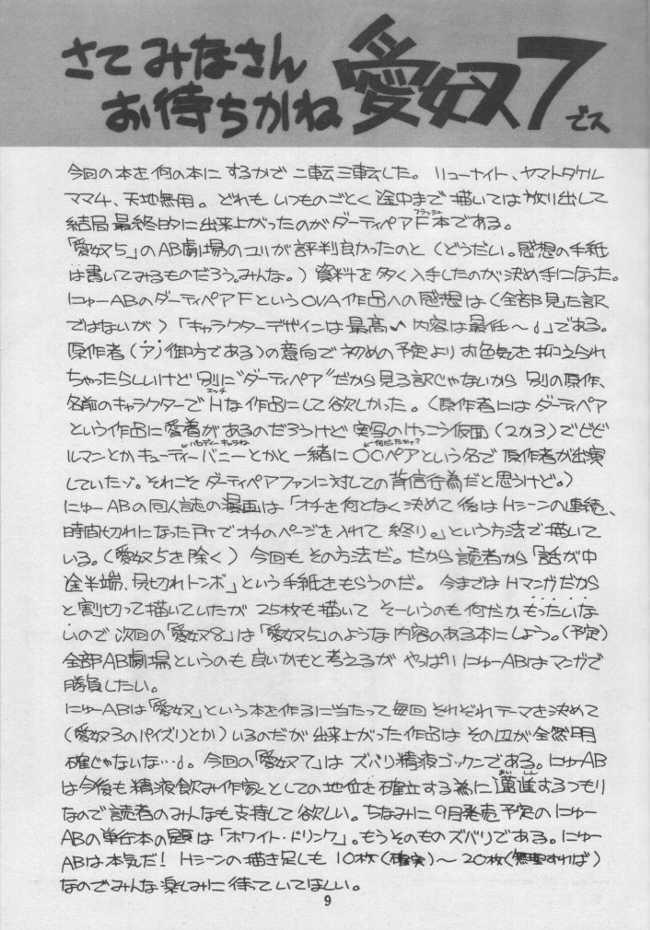 さてみなさん
お待ちかね 愛奴7 でス
今回の本を何の本にするかで二転三転した。 リューナイト、ヤマトタケル
ママ4、天地無用。どれもいつものごとく途中まで描いては放り出して
結局最終的に出来上がったのがダーティペアF本である。
フラッシュ
「愛奴5」のAB劇場のユリが評判良かったのと(どうだい。感想の手紙
は書いてみるものだろう。みんな。)資料を多く入手したのが決め手になった。
にゅーABのダーティペアFというOVA作品への感想は(全部見た訳
ではないが)「キャラクターデザインは最高♪内容は最低〜」である。
原作者(ア)御方である)の意向で初めの予定よりお色気を抑えられ
ちゃったらしいけど別に"ダーティペア"だから見る訳じゃないから別の原作、
名前のキャラクターでHな作品にして欲しかった。(原作者にはダーティペア
エッチ
という作品に愛着があるのだろうけど実写のけっこう仮面(2か3)でどど
ルマンとかキューティーバニーとかと一緒に〇〇ペアという名で原作者が出演
していたゾ。それこそダーティペアファンに対しての背信行為だと思うけど。)
にゅーABの同人誌の漫画は「オチを何となく決めて後はHシーンの連続、
時間切れになった所でオチのページを入れて終り。」という方法で描いて
いる。(愛奴5を除く)今回もその方法だ。だから読者から「話が中
途半端、尻切れトンボ」という手紙をもらうのだ。 今まではHマンガだから
と割切って描いていたが25枚も描いてそーいうのも何だかもったいな
いので次回の「愛奴8」は「愛奴5」のような内容のある本にしよう。(予定)
全部AB劇場というのも良いかもと考えるがやっぱりにゅーABはマンガで
勝負したい。
にゅーABは「愛奴」という本を作るに当たって毎回それぞれテーマを決めて
(愛奴3のパイズリとか)いるのだが出来上がった作品はその辺が全然明
確じゃないな…。今回の「愛奴7」はズバリ精液ゴックンである。にゅーAB
は今後も精液飲み作家としての地位を確立する為に邁進するつもり
なので読者のみんなも支持して欲しい。ちなみに9月発売予定のにゅー
ABの単行本の題は「ホワイト・ドリンク」。もうそのものズバリである。にゅー
ABは本気だ！Hシーンの描き足しも10枚(確実)〜20枚(無理すれば)
なのでみんな楽しみに待っていてほしい。
9